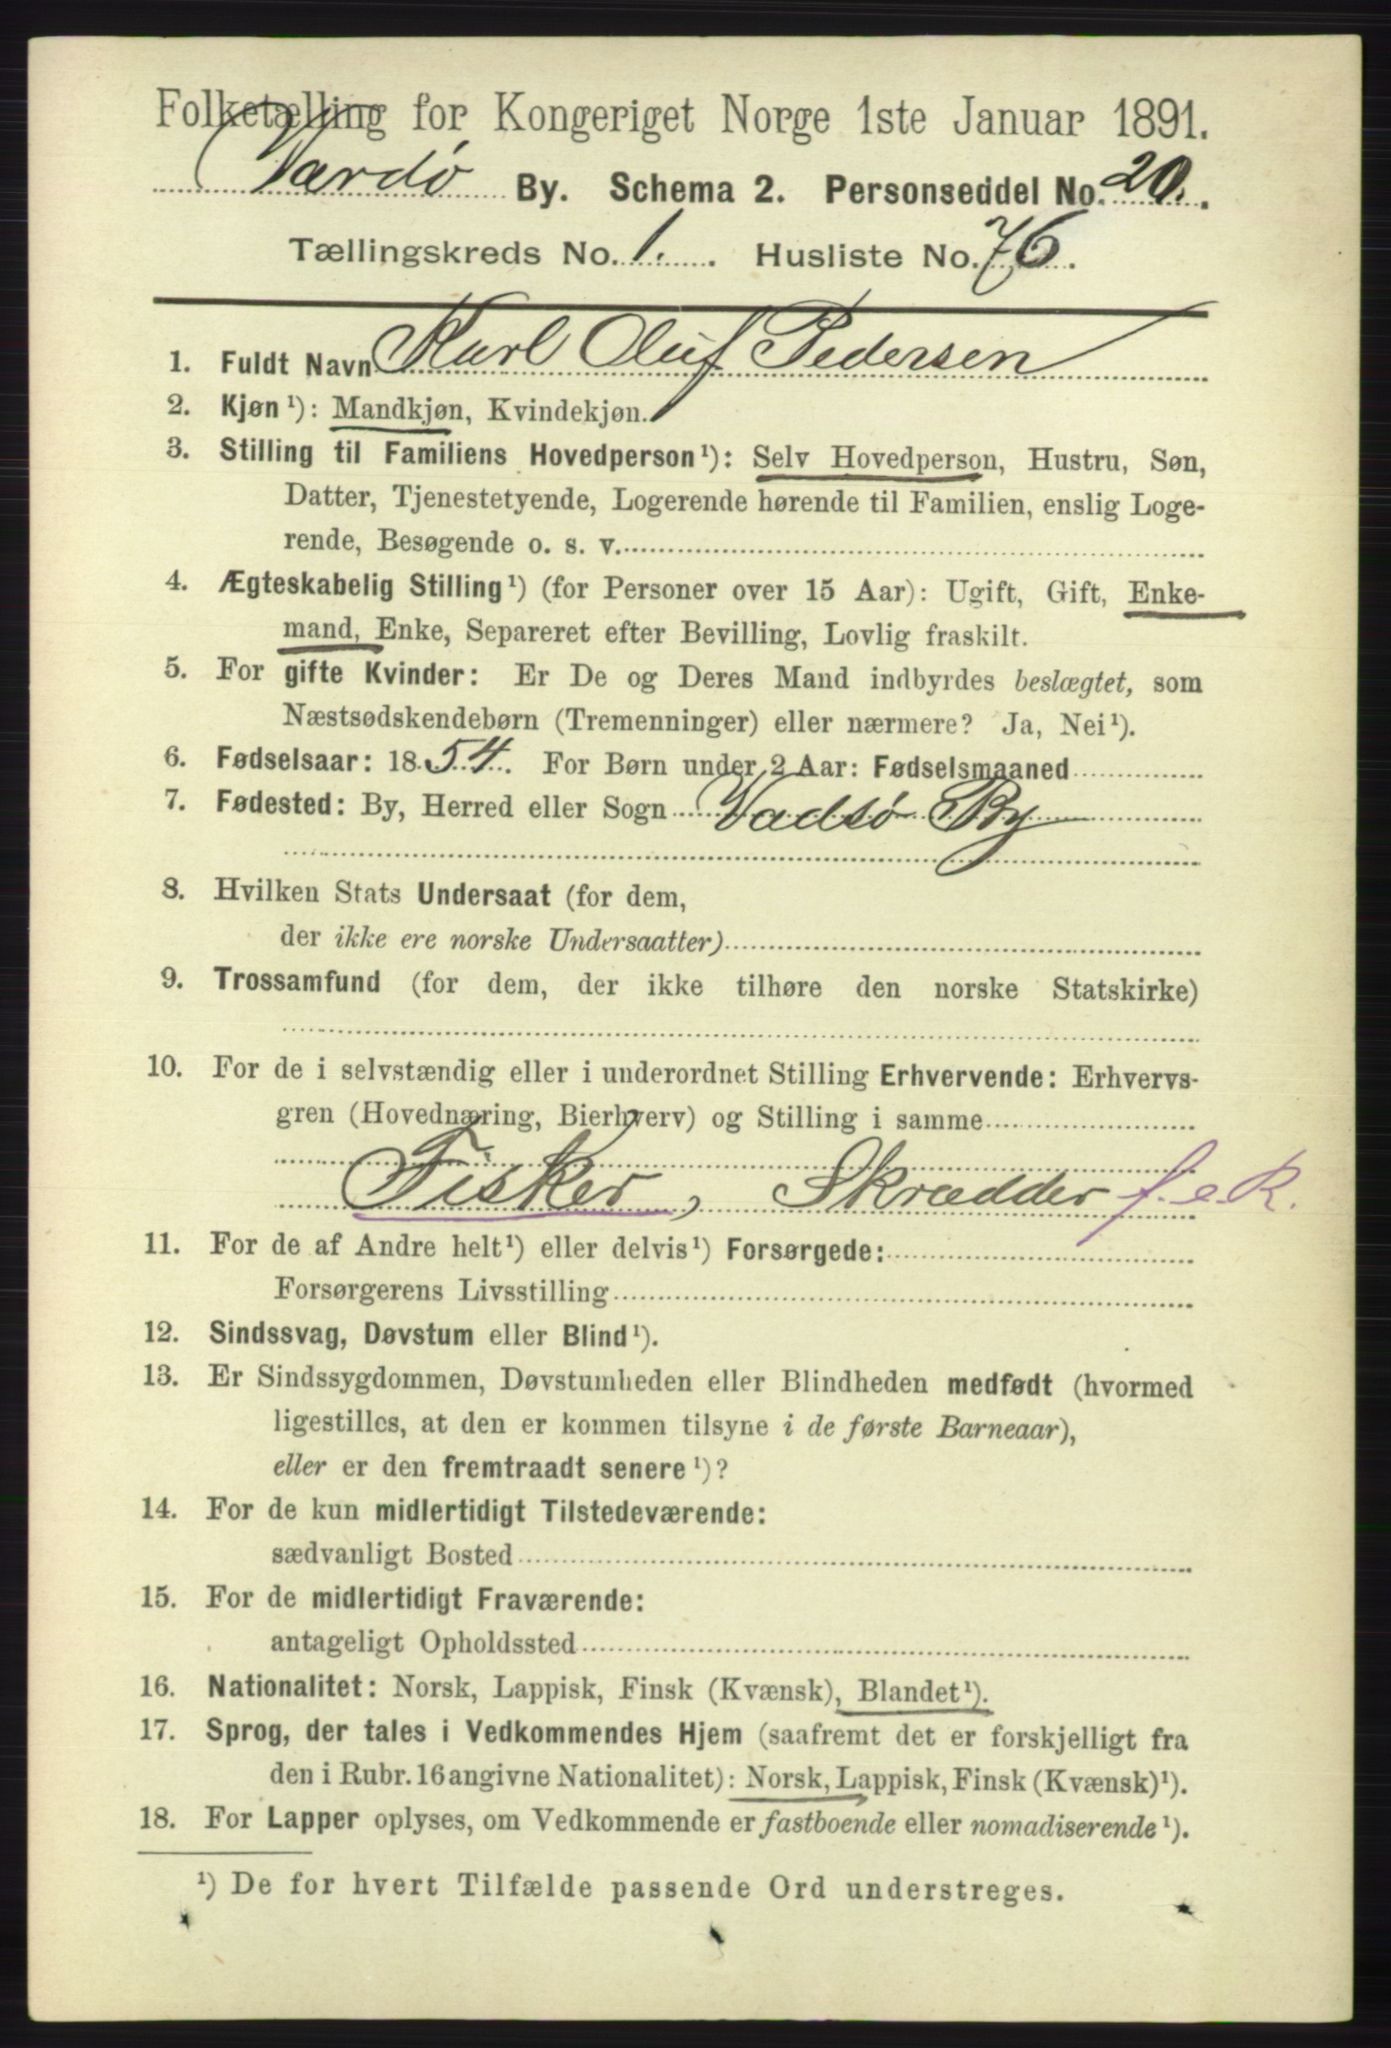 Folketælling for Kongeriget Norge 1ste Januar 1891.
Vardø By. Schema 2. Personseddel No. 20.
Tællingskreds No. 1. Husliste No. 76.
1. Fuldt Navn Karl Oluf Pedersen
2. Kjøn¹): Mandkjøn, Kvindekjøn.
3. Stilling til Familiens Hovedperson¹): Selv Hovedperson, Hustru, Søn,
Datter, Tjenestetyende, Logerende hørende til Familien, enslig Loge-
rende, Besøgende o. s. v.
4. Ægteskabelig Stilling¹) (for Personer over 15 Aar): Ugift, Gift, Enke-
mand, Enke, Separeret efter Bevilling, Lovlig fraskilt.
5. For gifte Kvinder: Er De og Deres Mand indbyrdes beslægtet, som
Næstsødskendebørn (Tremenninger) eller nærmere? Ja, Nei¹).
6. Fødselsaar: 1854. For Børn under 2 Aar: Fødselsmaaned
7. Fødested: By, Herred eller Sogn Vadsø By
8. Hvilken Stats Undersaat (for dem,
der ikke ere norske Undersaatter)
9. Trossamfund (for dem, der ikke tilhøre den norske Statskirke)
10. For de i selvstændig eller i underordnet Stilling Erhvervende: Erhvervs-
gren (Hovednæring, Bierhverv) og Stilling i samme
Fisker, Skrædder f. e R.
11. For de af Andre helt¹) eller delvis¹) Forsørgede:
Forsørgerens Livsstilling
12. Sindssvag, Døvstum eller Blind¹).
13. Er Sindssygdommen, Døvstumheden eller Blindheden medfødt (hvormed
ligestilles, at den er kommen tilsyne i de første Barneaar),
eller er den fremtraadt senere¹)?
14. For de kun midlertidigt Tilstedeværende:
sædvanligt Bosted
15. For de midlertidigt Fraværende:
antageligt Opholdssted
16. Nationalitet: Norsk, Lappisk, Finsk (Kvænsk), Blandet¹).
17. Sprog, der tales i Vedkommendes Hjem (saafremt det er forskjelligt fra
den i Rubr. 16 angivne Nationalitet): Norsk, Lappisk, Finsk (Kvænsk)¹).
18. For Lapper oplyses, om Vedkommende er fastboende eller nomadiserende¹).
¹) De for hvert Tilfælde passende Ord understreges.